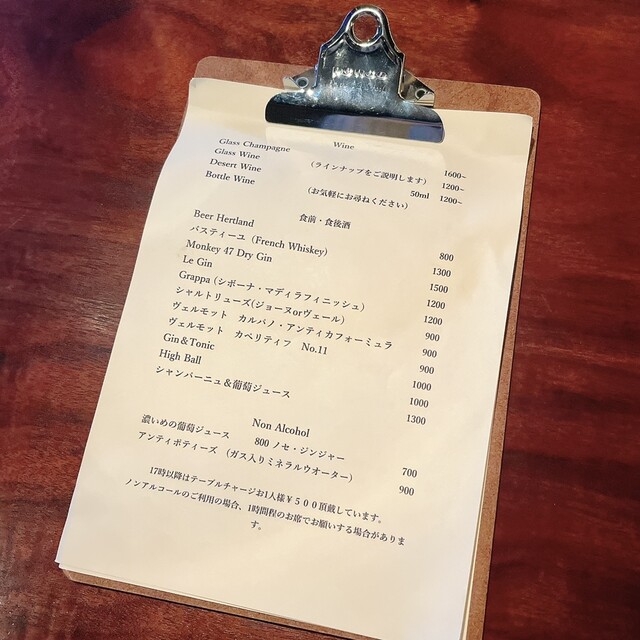 Wine
Glass Champagne 1600~
Glass Wine (ラインナップをご説明します) 1200~
Desert Wine 50ml 1200~
Bottle Wine (お気軽にお尋ねください)
食前・食後酒
Beer Hertland 800
バスティーユ (French Whiskey) 1300
Monkey 47 Dry Gin 1500
Le Gin 1200
Grappa (シボーナ・マディラフィニッシュ) 1200
シャルトリューズ(ジョーヌorヴェール) 900
ヴェルモット カルパノ・アンティカフォーミュラ 900
ヴェルモット カペリティフ No.11 900
Gin＆Tonic 1000
High Ball 1000
シャンパーニュ＆葡萄ジュース 1300
Non Alcohol
濃いめの葡萄ジュース 800 ノセ・ジンジャー 700
アンティポティーズ (ガス入りミネラルウオーター) 900
17時以降はテーブルチャージお1人様￥５００頂戴しています。
ノンアルコールのご利用の場合、1時間程のお席でお願いする場合がありま
す。